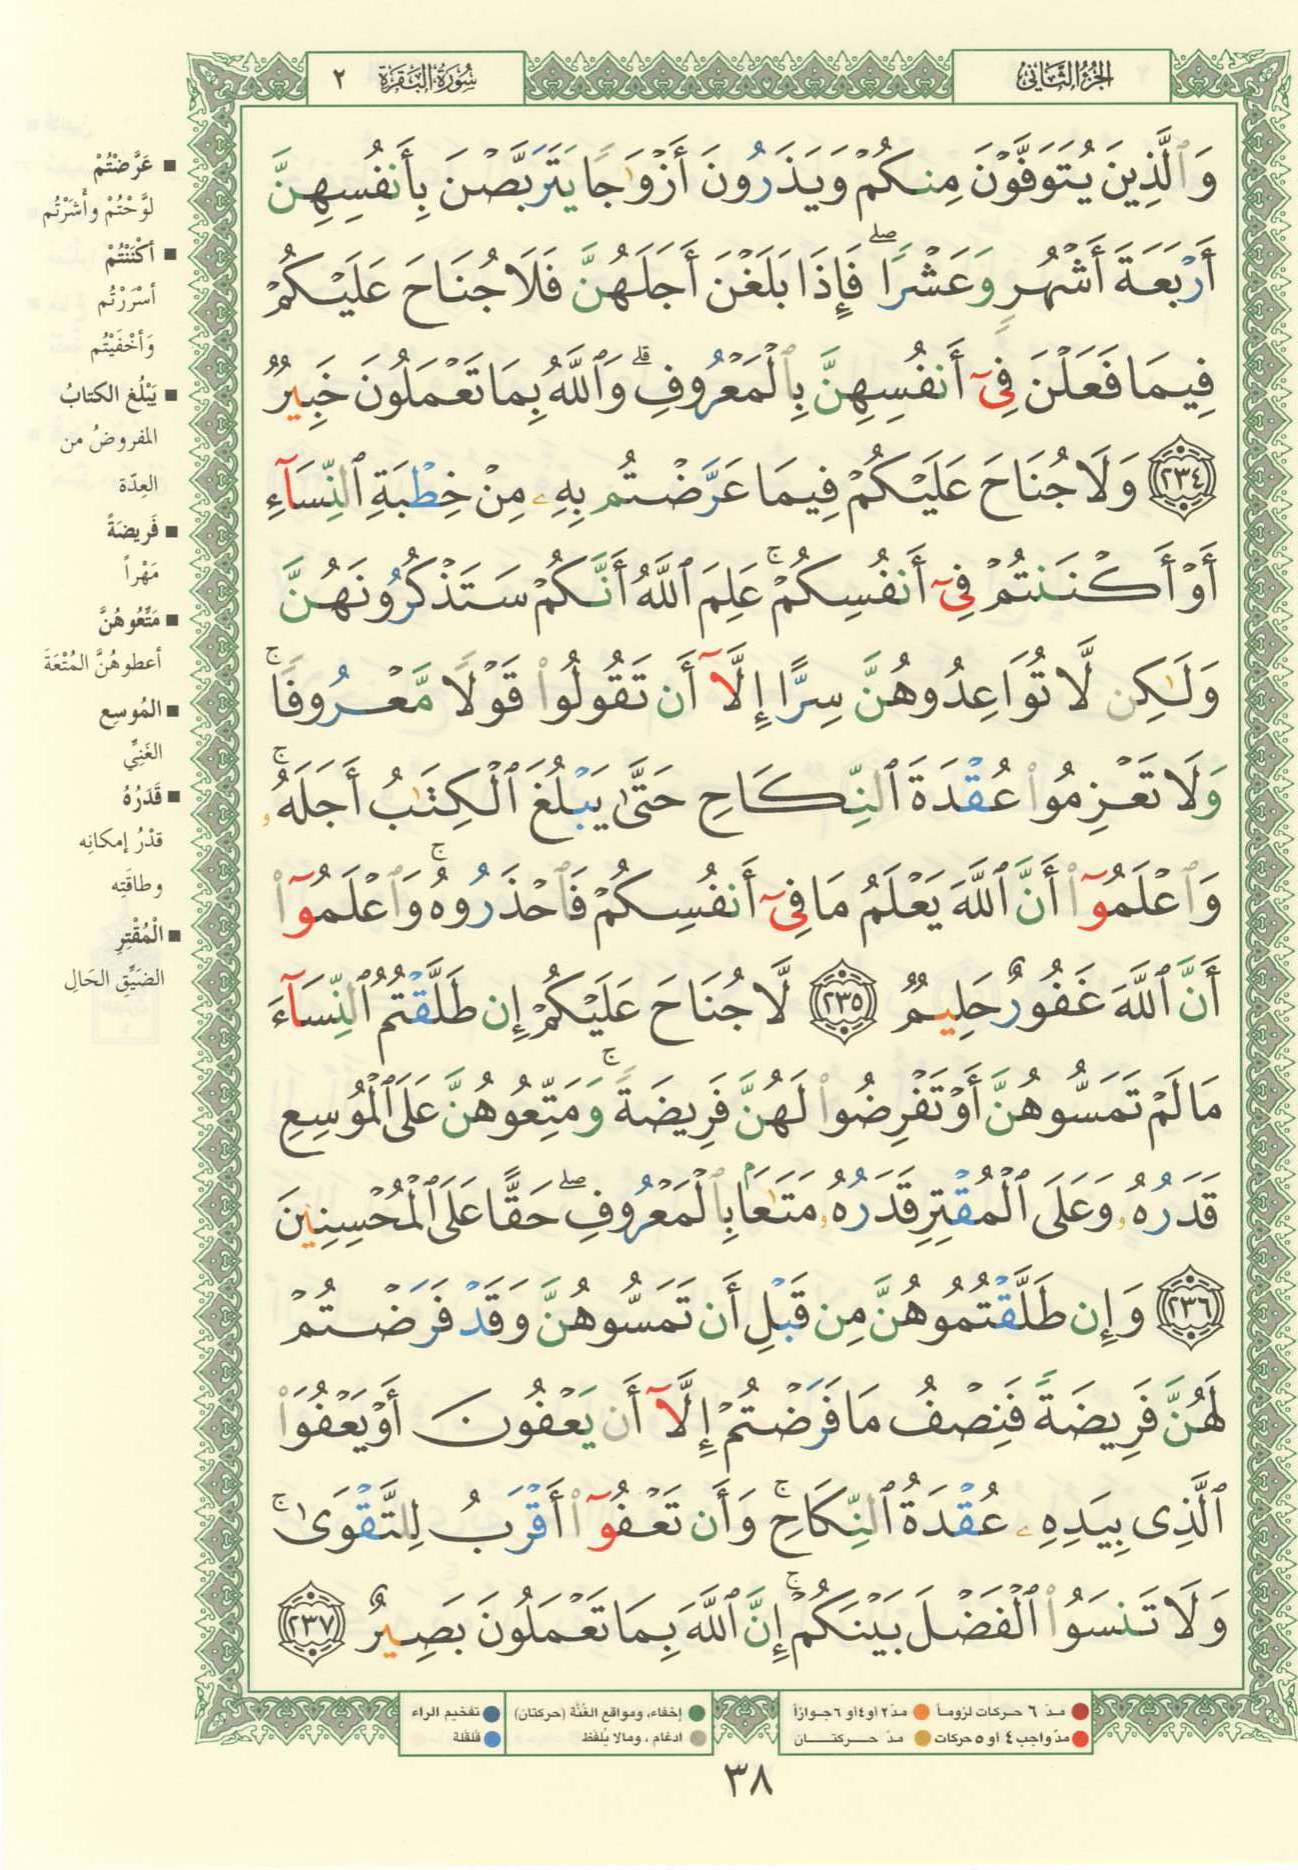 الجزء الثاني
سورة البقرة ٢
وَٱلَّذِينَ يُتَوَفَّوْنَ مِنكُمْ وَيَذَرُونَ أَزْوَٰجًا يَتَرَبَّصْنَ بِأَنفُسِهِنَّ
أَرْبَعَةَ أَشْهُرٍ وَعَشْرًا ۖ فَإِذَا بَلَغْنَ أَجَلَهُنَّ فَلَا جُنَاحَ عَلَيْكُمْ
فِيمَا فَعَلْنَ فِىٓ أَنفُسِهِنَّ بِٱلْمَعْرُوفِ ۗ وَٱللَّهُ بِمَا تَعْمَلُونَ خَبِيرٌ
٢٣٤ وَلَا جُنَاحَ عَلَيْكُمْ فِيمَا عَرَّضْتُم بِهِۦ مِنْ خِطْبَةِ ٱلنِّسَآءِ
أَوْ أَكْنَنتُمْ فِىٓ أَنفُسِكُمْ ۚ عَلِمَ ٱللَّهُ أَنَّكُمْ سَتَذْكُرُونَهُنَّ
وَلَٰكِن لَّا تُوَاعِدُوهُنَّ سِرًّا إِلَّآ أَن تَقُولُوا۟ قَوْلًا مَّعْرُوفًا ۚ
وَلَا تَعْزِمُوا۟ عُقْدَةَ ٱلنِّكَاحِ حَتَّىٰ يَبْلُغَ ٱلْكِتَٰبُ أَجَلَهُۥ ۚ
وَٱعْلَمُوٓا۟ أَنَّ ٱللَّهَ يَعْلَمُ مَا فِىٓ أَنفُسِكُمْ فَٱحْذَرُوهُ ۚ وَٱعْلَمُوٓا۟
أَنَّ ٱللَّهَ غَفُورٌ حَلِيمٌ ٢٣٥ لَّا جُنَاحَ عَلَيْكُمْ إِن طَلَّقْتُمُ ٱلنِّسَآءَ
مَا لَمْ تَمَسُّوهُنَّ أَوْ تَفْرِضُوا۟ لَهُنَّ فَرِيضَةً ۚ وَمَتِّعُوهُنَّ عَلَى ٱلْمُوسِعِ
قَدَرُهُۥ وَعَلَى ٱلْمُقْتِرِ قَدَرُهُۥ مَتَٰعًۢا بِٱلْمَعْرُوفِ ۖ حَقًّا عَلَى ٱلْمُحْسِنِينَ
٢٣٦ وَإِن طَلَّقْتُمُوهُنَّ مِن قَبْلِ أَن تَمَسُّوهُنَّ وَقَدْ فَرَضْتُمْ
لَهُنَّ فَرِيضَةً فَنِصْفُ مَا فَرَضْتُمْ إِلَّآ أَن يَعْفُونَ أَوْ يَعْفُوَا۟
ٱلَّذِى بِيَدِهِۦ عُقْدَةُ ٱلنِّكَاحِ ۚ وَأَن تَعْفُوٓا۟ أَقْرَبُ لِلتَّقْوَىٰ ۚ
وَلَا تَنسَوُا۟ ٱلْفَضْلَ بَيْنَكُمْ ۚ إِنَّ ٱللَّهَ بِمَا تَعْمَلُونَ بَصِيرٌ ٢٣٧
■ عَرَّضْتُمْ
لوَّحْتُمْ وأَشَرْتُم
■ أكْنَنْتُمْ
أسْرَرْتُم
وَأخْفَيْتُم
■ يَبْلُغ الكتابُ
المفروضُ من
العِدّة
■ فَريضَةً
مَهْراً
■ مَتِّعُوهُنَّ
أعطوهُنَّ المُتْعَةَ
■ المُوسِع
الغَنِيِّ
■ قَدَرُهُ
قدْرُ إمكانِه
وطاقَتِه
■ الْمُقْتِرِ
الضَيِّقِ الحَالِ
مدّ ٦ حركات لزوماً مدّ ٢ أو ٤ أو ٦ جوازاً
مدّ واجب ٤ أو ٥ حركات مدّ حركتان
إخفاء، ومواقع الغُنَّة (حركتان) تفخيم الراء
ادغام، ومالا يُلفَظ قلقلة
٣٨